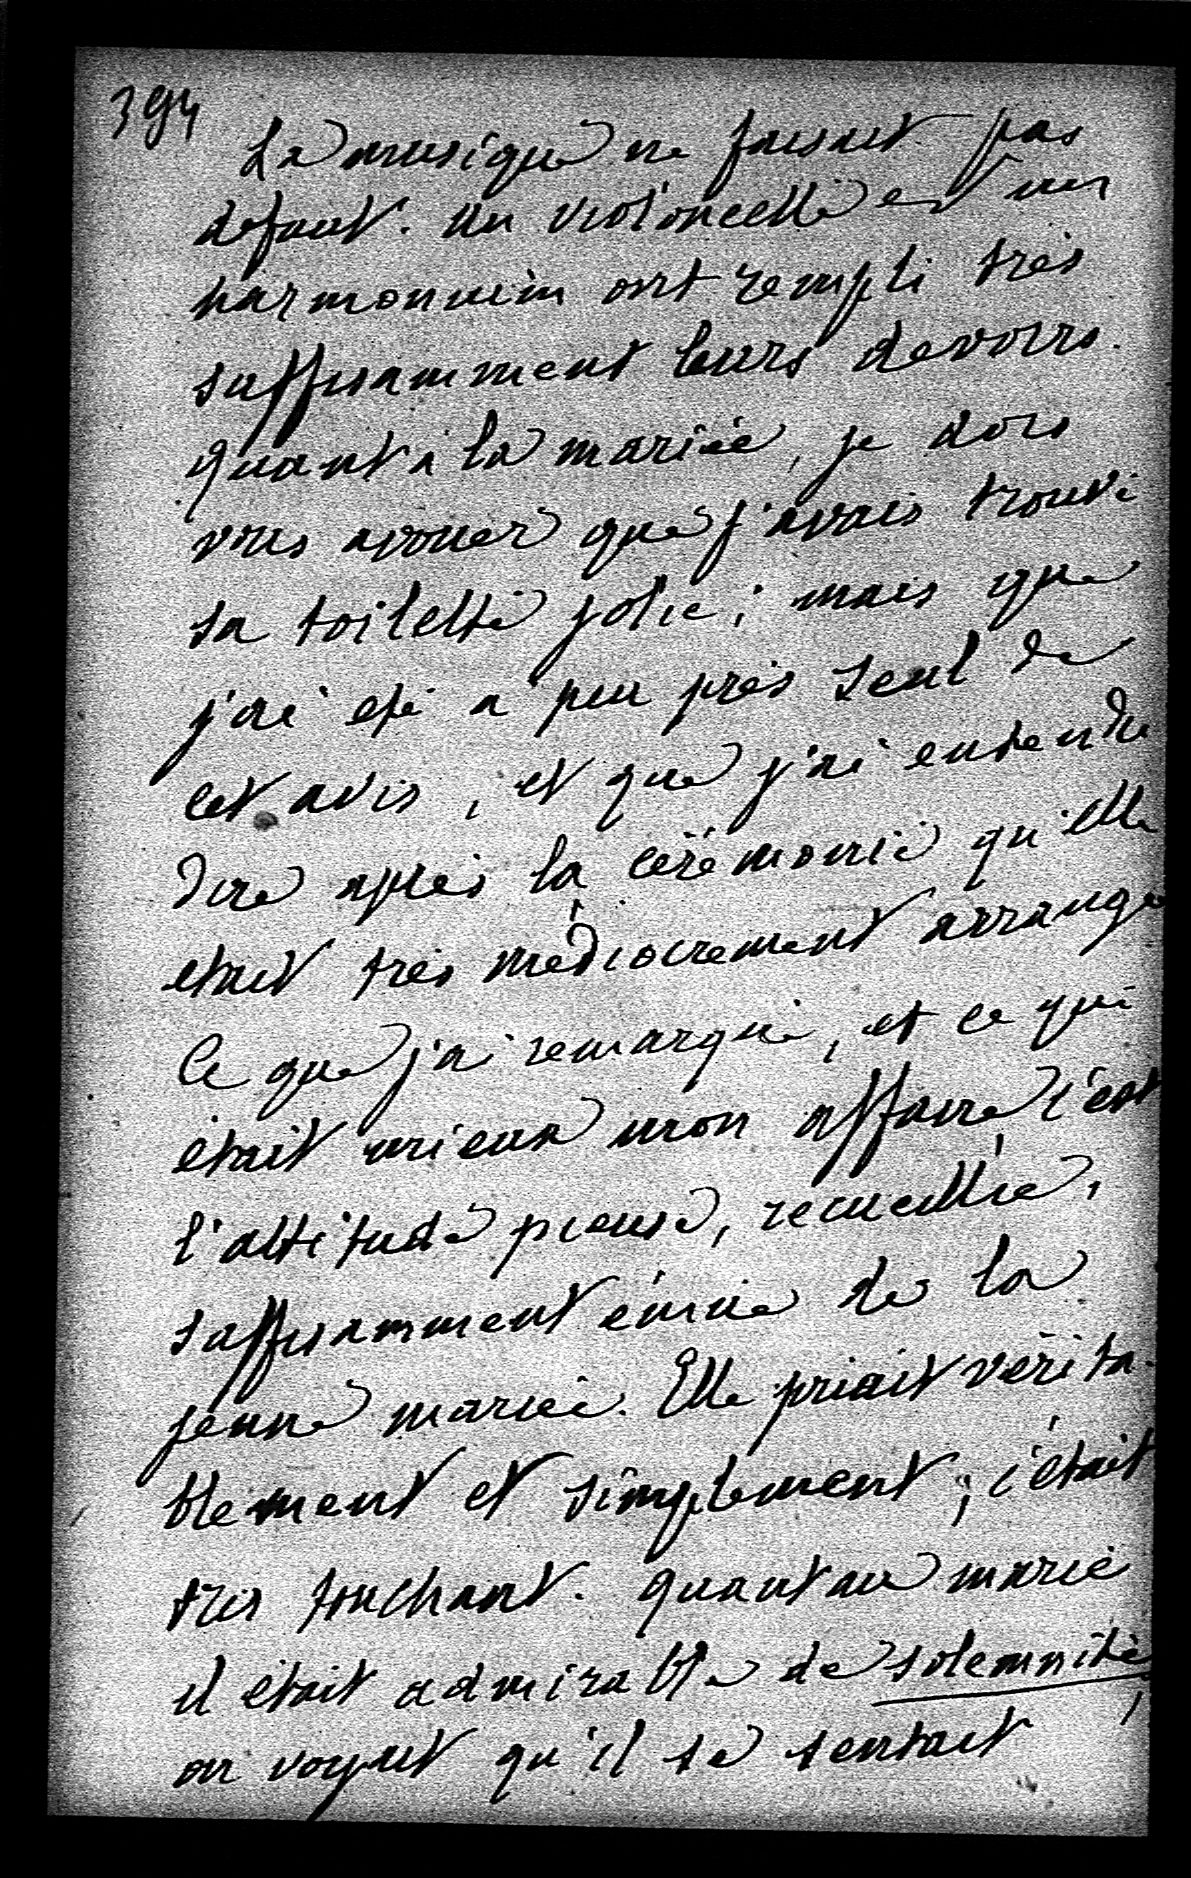 394
La musique ne faisait pas
defaut. Un violoncelle et un
harmonium ont rempli très
suffisamment leurs devoirs.
quant à la mariée, je dois
vous avouer que j'avais trouvé
sa toilette jolie; mais que
j'ai été a peu près seul de
cet avis, et que j'ai entendu
dire après la cérémonie qu'elle
etait très médiocrement arrangé
Ce que j'ai remarqué, et ce qui
était mieux mon affaire c'est
l'attitude pieuse, recueillie,
suffisamment émue de la
jeune mariée. Elle priait vérita-
blement et simplement; c'était
très touchant. quant au marié
il était admirable de solemnité,
on voyait qu'il se sentait